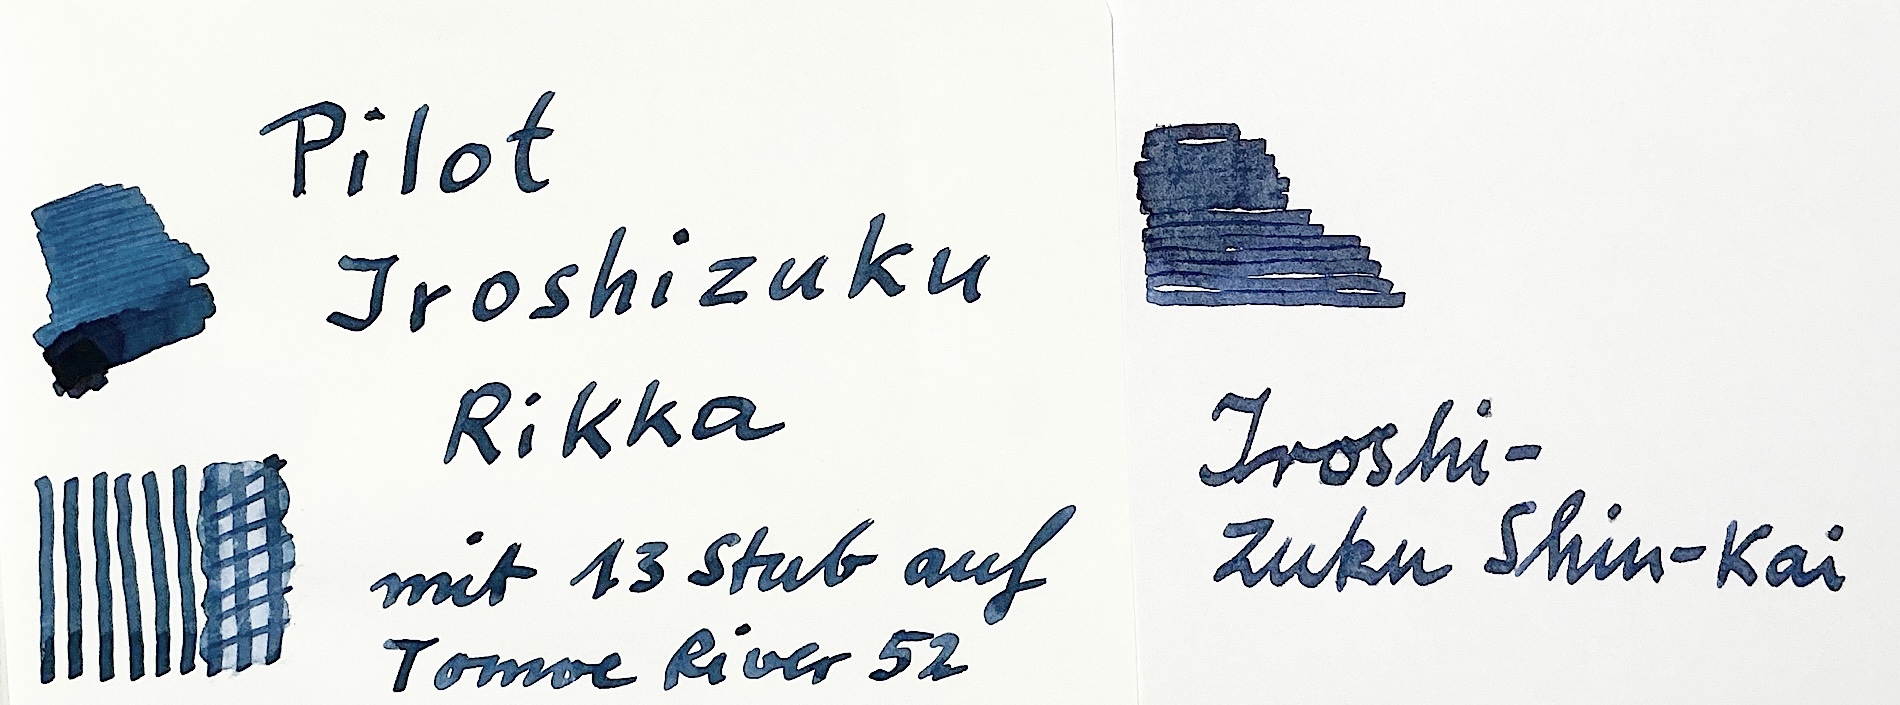 Pilot
Iroshizuku
Rikka
mit 13 Stub auf
Tomoe River 52
Iroshi-
zuku Shin-Kai